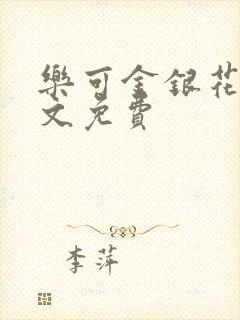 樂可金銀花
文免費
李萍